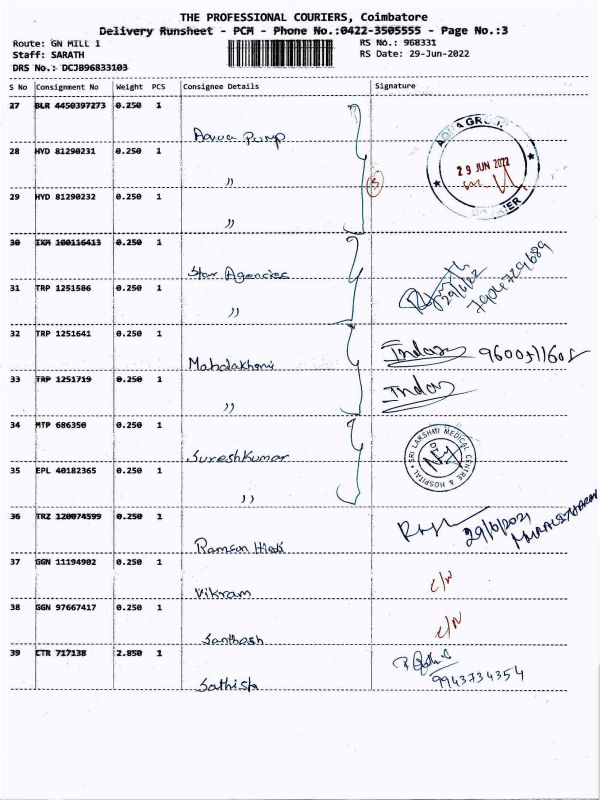 THE PROFESSIONAL COURIERS, Coimbatore
Delivery Runsheet - PCM - Phone No.:0422-3505555 - Page No.:3
Route: GN MILL 1 RS No.: 968331
Staff: SARATH RS Date: 29-Jun-2022
DRS No.: DCJB96833103
S No Consignment No Weight PCS Consignee Details Signature
27 BLR 4450397273 0.250 1
Aqua Pump
AQUA GROUP
28 HYD 81290231 0.250 1
29 JUN 2022
"
29 HYD 81290232 0.250 1
"
30 IXM 100116413 0.250 1
Star Agencies
31 TRP 1251586 0.250 1
29/6/22
7904729689
"
32 TRP 1251641 0.250 1
Mahalakhmi
9600511601
33 TRP 1251719 0.250 1
"
34 MTP 686350 0.250 1
SureshKumar
SRI LAKSHMI MEDICAL CENTRE & HOSPITAL
35 EPL 40182365 0.250 1
"
36 TRZ 120074599 0.250 1
29/6/2021
MURALITHARAN
37 GGN 11194902 0.250 1
C/N
Vikram
38 GGN 97667417 0.250 1
C/N
Santhosh
39 CTR 717138 2.850 1
9943734354
Sathish